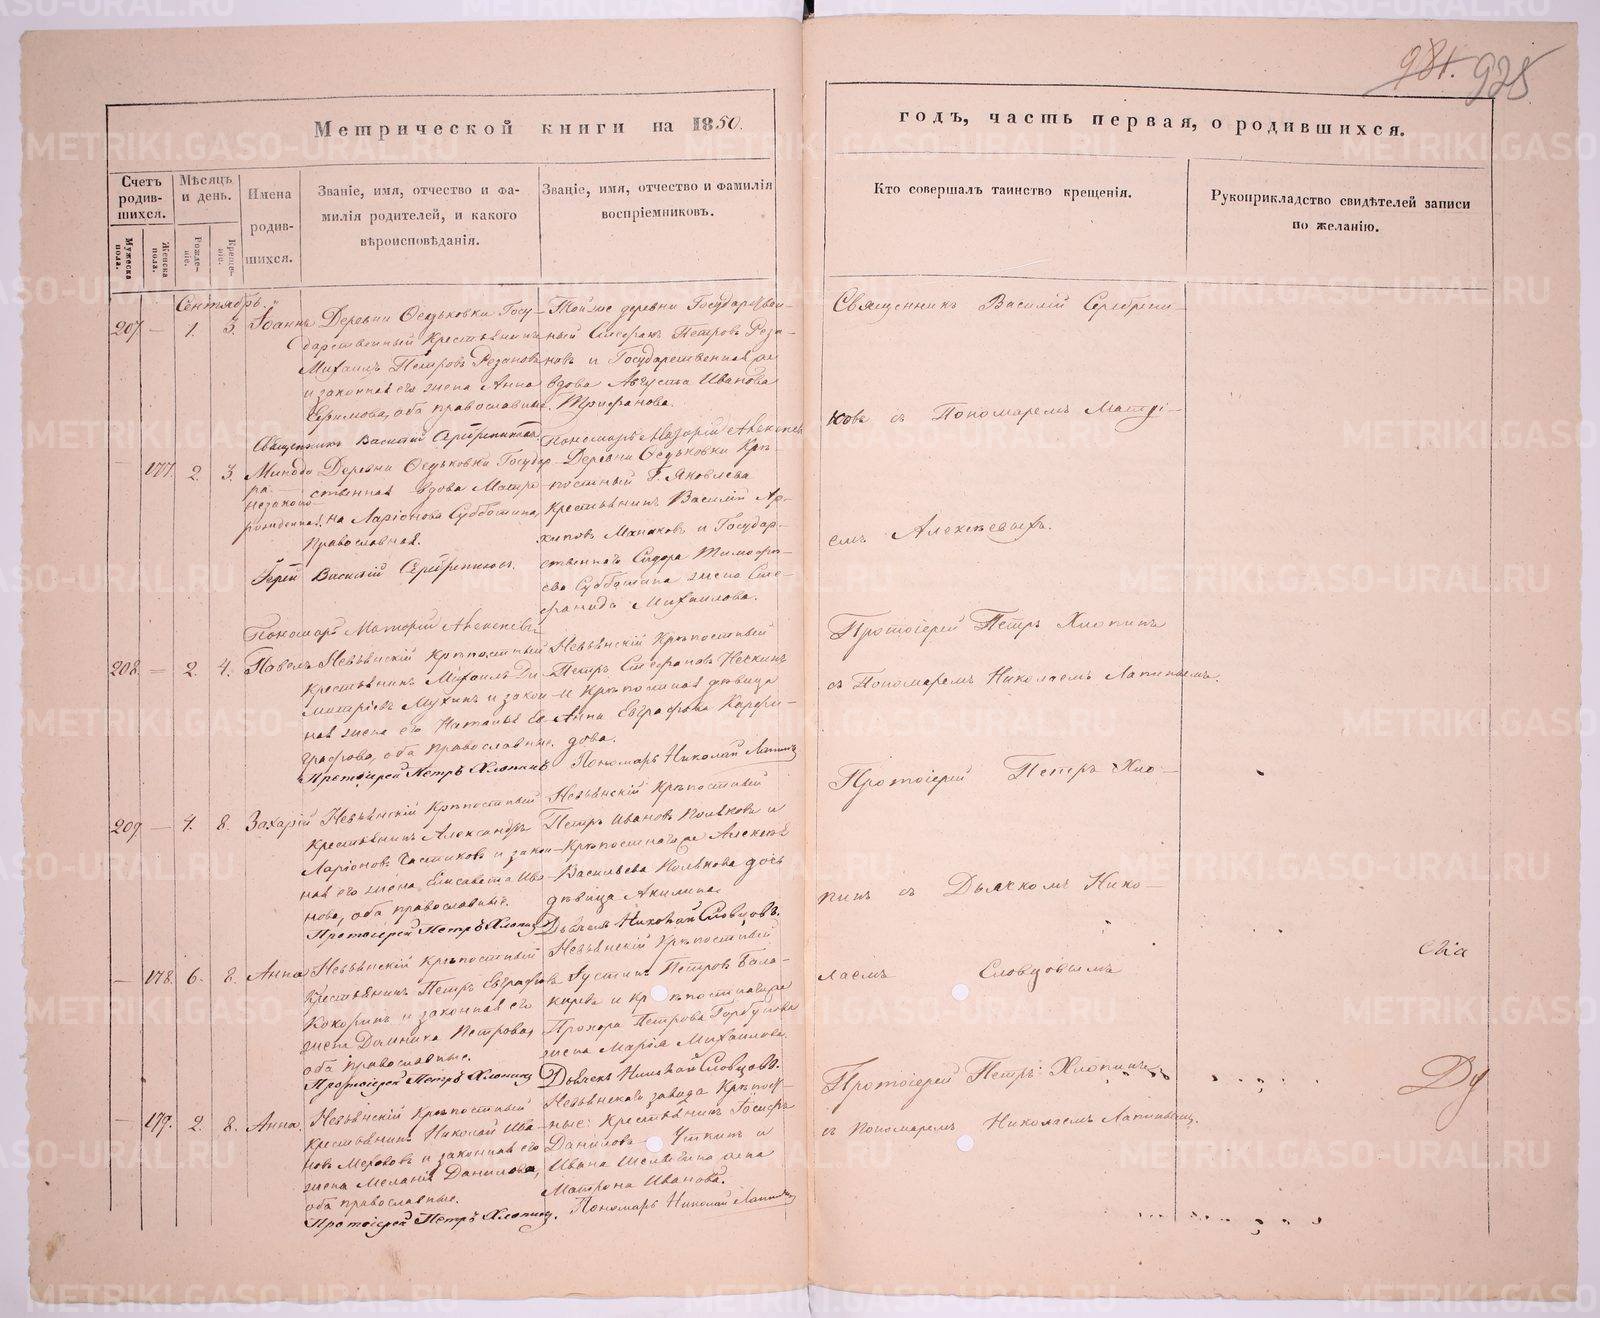 981. 928
Метрической книги на 1850.
годъ, часть первая, о родившихся.
Счетъ родив-шихся.
Мужеска пола.
Женска пола.
Мѣсяцъ и день.
Рожде-ніе.
Креще-ніе.
Имена родив-шихся.
Званіе, имя, отчество и фа-
милія родителей, и какого
вѣроисповѣданія.
Званіе, имя, отчество и фамилія
воспріемниковъ.
Кто совершалъ таинство крещенія.
Рукоприкладство свидѣтелей записи
по желанію.
Сентябрь.
207 — 1. 3. Іоаннъ
Деревни Ѳедьковки Госу-
дарственный Крестьянинъ
Михаилъ Петровъ Резановъ
и законная его жена Анна
Ефимова, оба православные.
Священникъ Василій Серебренниковъ
Тойже деревни Государствен-
ный Стефанъ Петровъ Реза-
новъ и Государственная
вдова Августа Иванова
Трифанова.
Священникъ Василій Серебрени-
ковъ съ Пономаремъ Матѳі-
емъ Алексѣевыхъ.
— 177. 2. 3. Минодо
ра
незаконно
рожденна
Деревни Ѳедьковки Государ-
ственная вдова Матре
на Ларіонова Субботина,
Православная.
Іерей Василій Серебренниковъ
Деревни Ѳедьковки Крѣ-
постный Г. Яковлева
Крестьянинъ Василій Ар-
хиповъ и Государ-
ственнаго Сидора Тимофѣ-
ева Субботина жена Сте-
фанида Михаилова.
208. — 2. 4. Павелъ
Невьянскій Крѣпостный
Крестьянинъ Михаилъ Ди
митріевъ Мухинъ и закон-
ная жена его Наталья Ев
графова, оба православные.
Протоіерей Петръ Хлопинъ
Невьянскій Крѣпостный
Петръ Стефановъ
и Крѣпостная дѣвица
Анна Евграфова Карфи-
дова.
Пономарь Николай Лапинъ
Протоіерей Петръ Хлопинъ
съ Пономаремъ Николаемъ Лапинымъ
209 — 4. 8. Захарій
Невьянскій Крѣпостный
Крестьянинъ Александръ
Ларіоновъ и закон-
ная его жена, Елисавета Ива
нова, оба православные.
Протоіерей Петръ Хлопинъ
Невьянскій Крѣпостный
Петръ Ивановъ Поляковъ и
Крѣпостнаго Алексѣя
Васильева Полякова дочь
дѣвица Акилина.
Дьячекъ Николай Словцовъ.
Протоіерей Петръ Хло-
пинъ съ Дьячкомъ Нико-
лаемъ Словцовымъ
— 178. 6. 8. Анна
Невьянскій Крѣпостный
Крестьянинъ Петръ Евграфовъ
Кокоринъ и законная его
жена Домника Петрова,
оба православные.
Протоіерей Петръ Хлопинъ
Невьянскій Крѣпостный
Іустинъ Петровъ Бала-
киревъ и крѣпостнаго
Прохора Петрова Горбунова
жена Марія Михаилова.
Дьячекъ Николай Словцовъ.
Протоіерей Петръ Хлопинъ
съ Пономаремъ Николаемъ Лапинымъ.
— 179. 2. 8. Анна.
Невьянскій Крѣпостный
Крестьянинъ Николай Ива-
новъ и законная его
жена Меланія Данилова,
оба православные.
Протоіерей Петръ Хлопинъ.
Невьянскаго завода Крѣпост-
ные: Крестьянинъ Іосифъ
Даниловъ Уткинъ и
Ивана жена
Матрона Иванова.
Пономарь Николай Лапинъ
METRIKI.GASO-URAL.RU